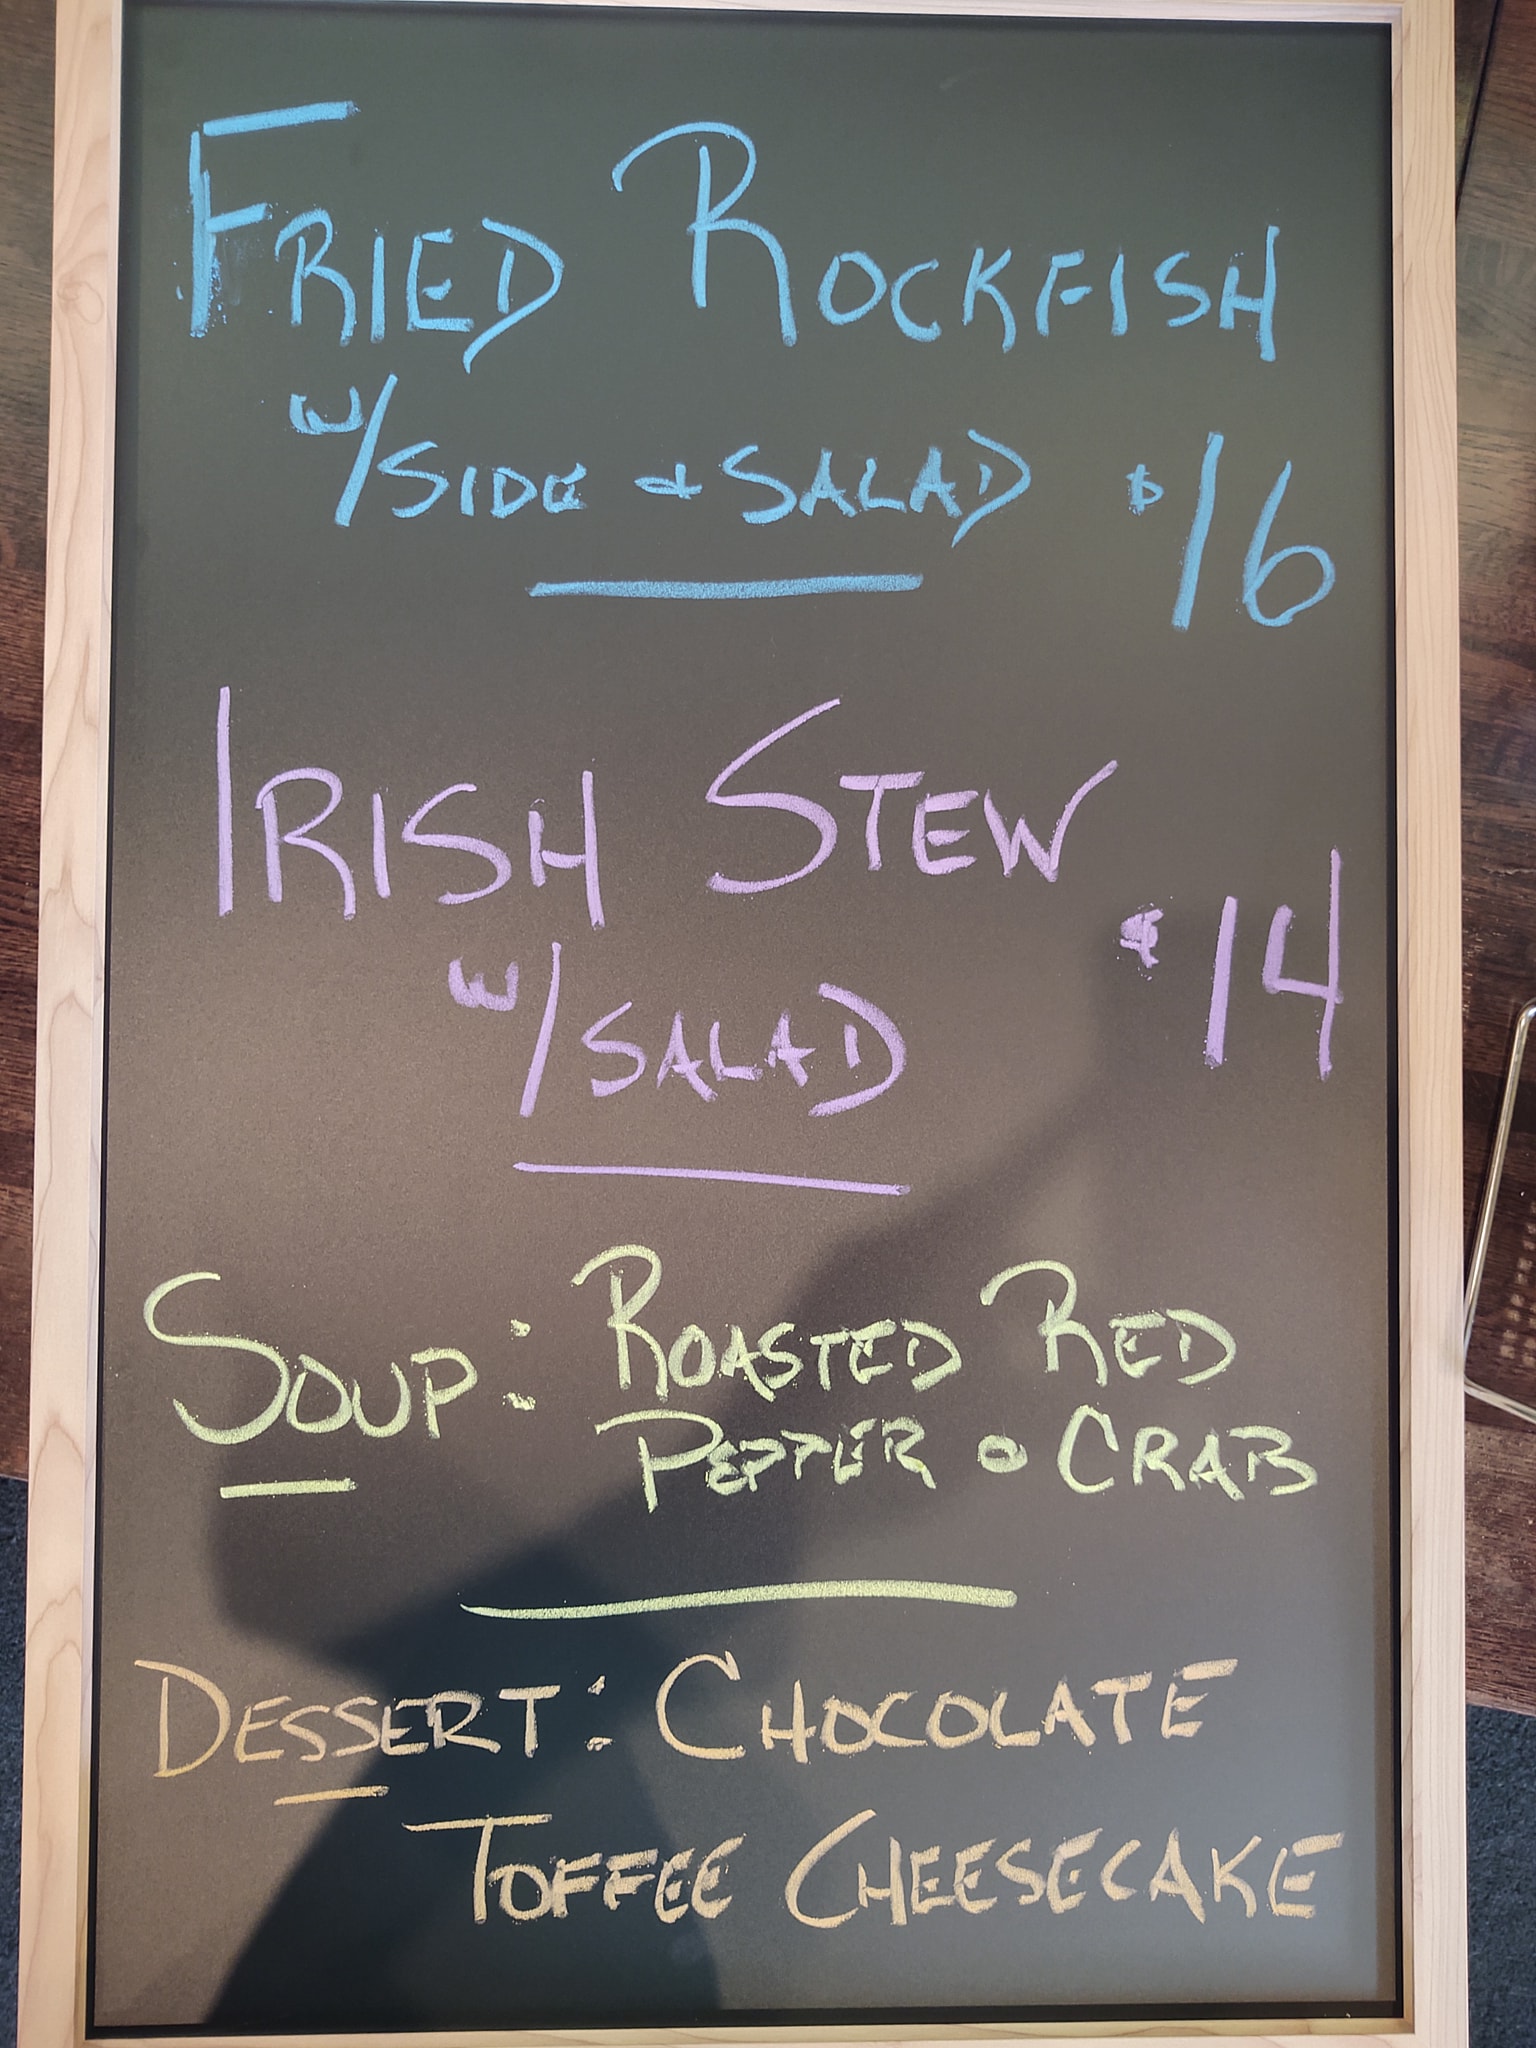 FRIED ROCKFISH
W/SIDE & SALAD $16
IRISH STEW
W/SALAD $14
SOUP: ROASTED RED
PEPPER & CRAB
DESSERT: CHOCOLATE
TOFFEE CHEESECAKE